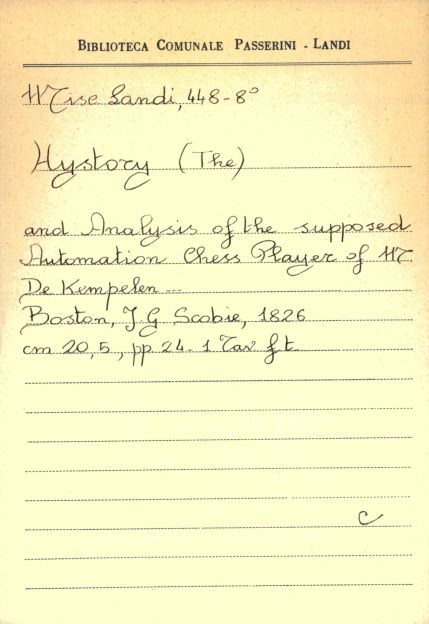 BIBLIOTECA COMUNALE PASSERINI - LANDI
Misc Landi, 448-8°
Hystory (The)
and Analysis of the supposed
Automation Chess Player of M
De Kempelen...
Boston, J. G Scobie, 1826
cm 20,5, pp 24. 1 Tav f. t.
C